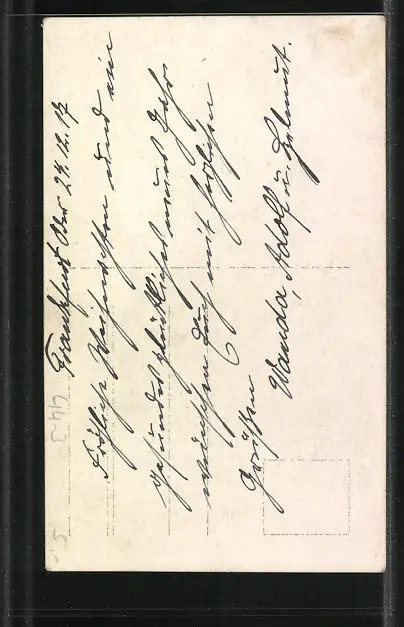 Frankfurt Oder 24.12.17
Fröhliche Weihnachten und ein
gesundes glückliches neues Jahr
wünschen Euch mit herzlichen
Grüßen
Wanda, Adolf u. Helmut.